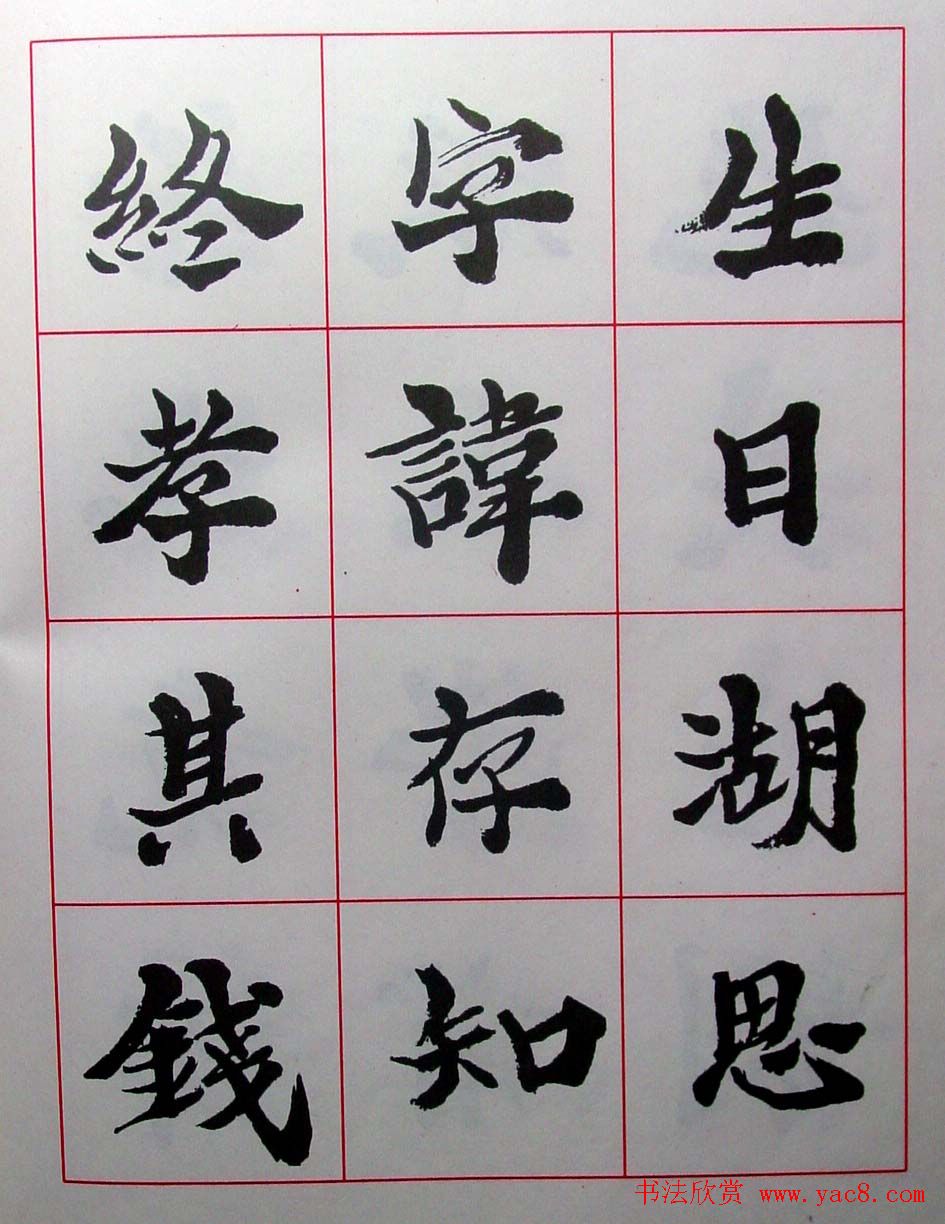 生日湖思
字諱存知
終孝其錢
书法欣赏 www.yac8.com